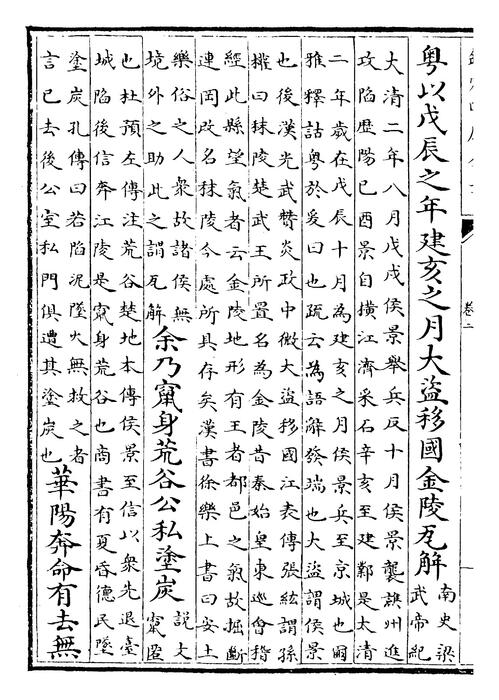 粵以戊辰之年建亥之月大盜移國金陵瓦解
南史梁
武帝紀
大清二年八月戊戌侯景舉兵反十月侯景襲譙州進
攻陷歷陽已酉景自橫江濟采石辛亥至建鄴是太清
二年歲在戊辰十月為建亥之月侯景兵至京城也爾
雅釋詁粵於爰曰也疏云為語辭發端也大盜謂侯景
也後漢光武贊炎政中微大盜移國江表傳張紘謂孫
權曰秣陵楚武王所置名為金陵昔秦始皇東巡會稽
經此縣望氣者云金陵地形有王者都邑之氣故掘斷
連岡改名秣陵今處所具存矣漢書徐樂上書曰安土
樂俗之人衆故諸侯無
境外之助此之謂瓦解
余乃竄身荒谷公私塗炭
說文
竄匿
也杜預左傳注荒谷楚地本傳侯景至信以衆先退臺
城陷後信奔江陵是竄身荒谷也商書有夏昏德民墜
塗炭孔傳曰若陷泥墜火無救之者
言已去後公室私門俱遭其塗炭也
華陽奔命有去無
卷二